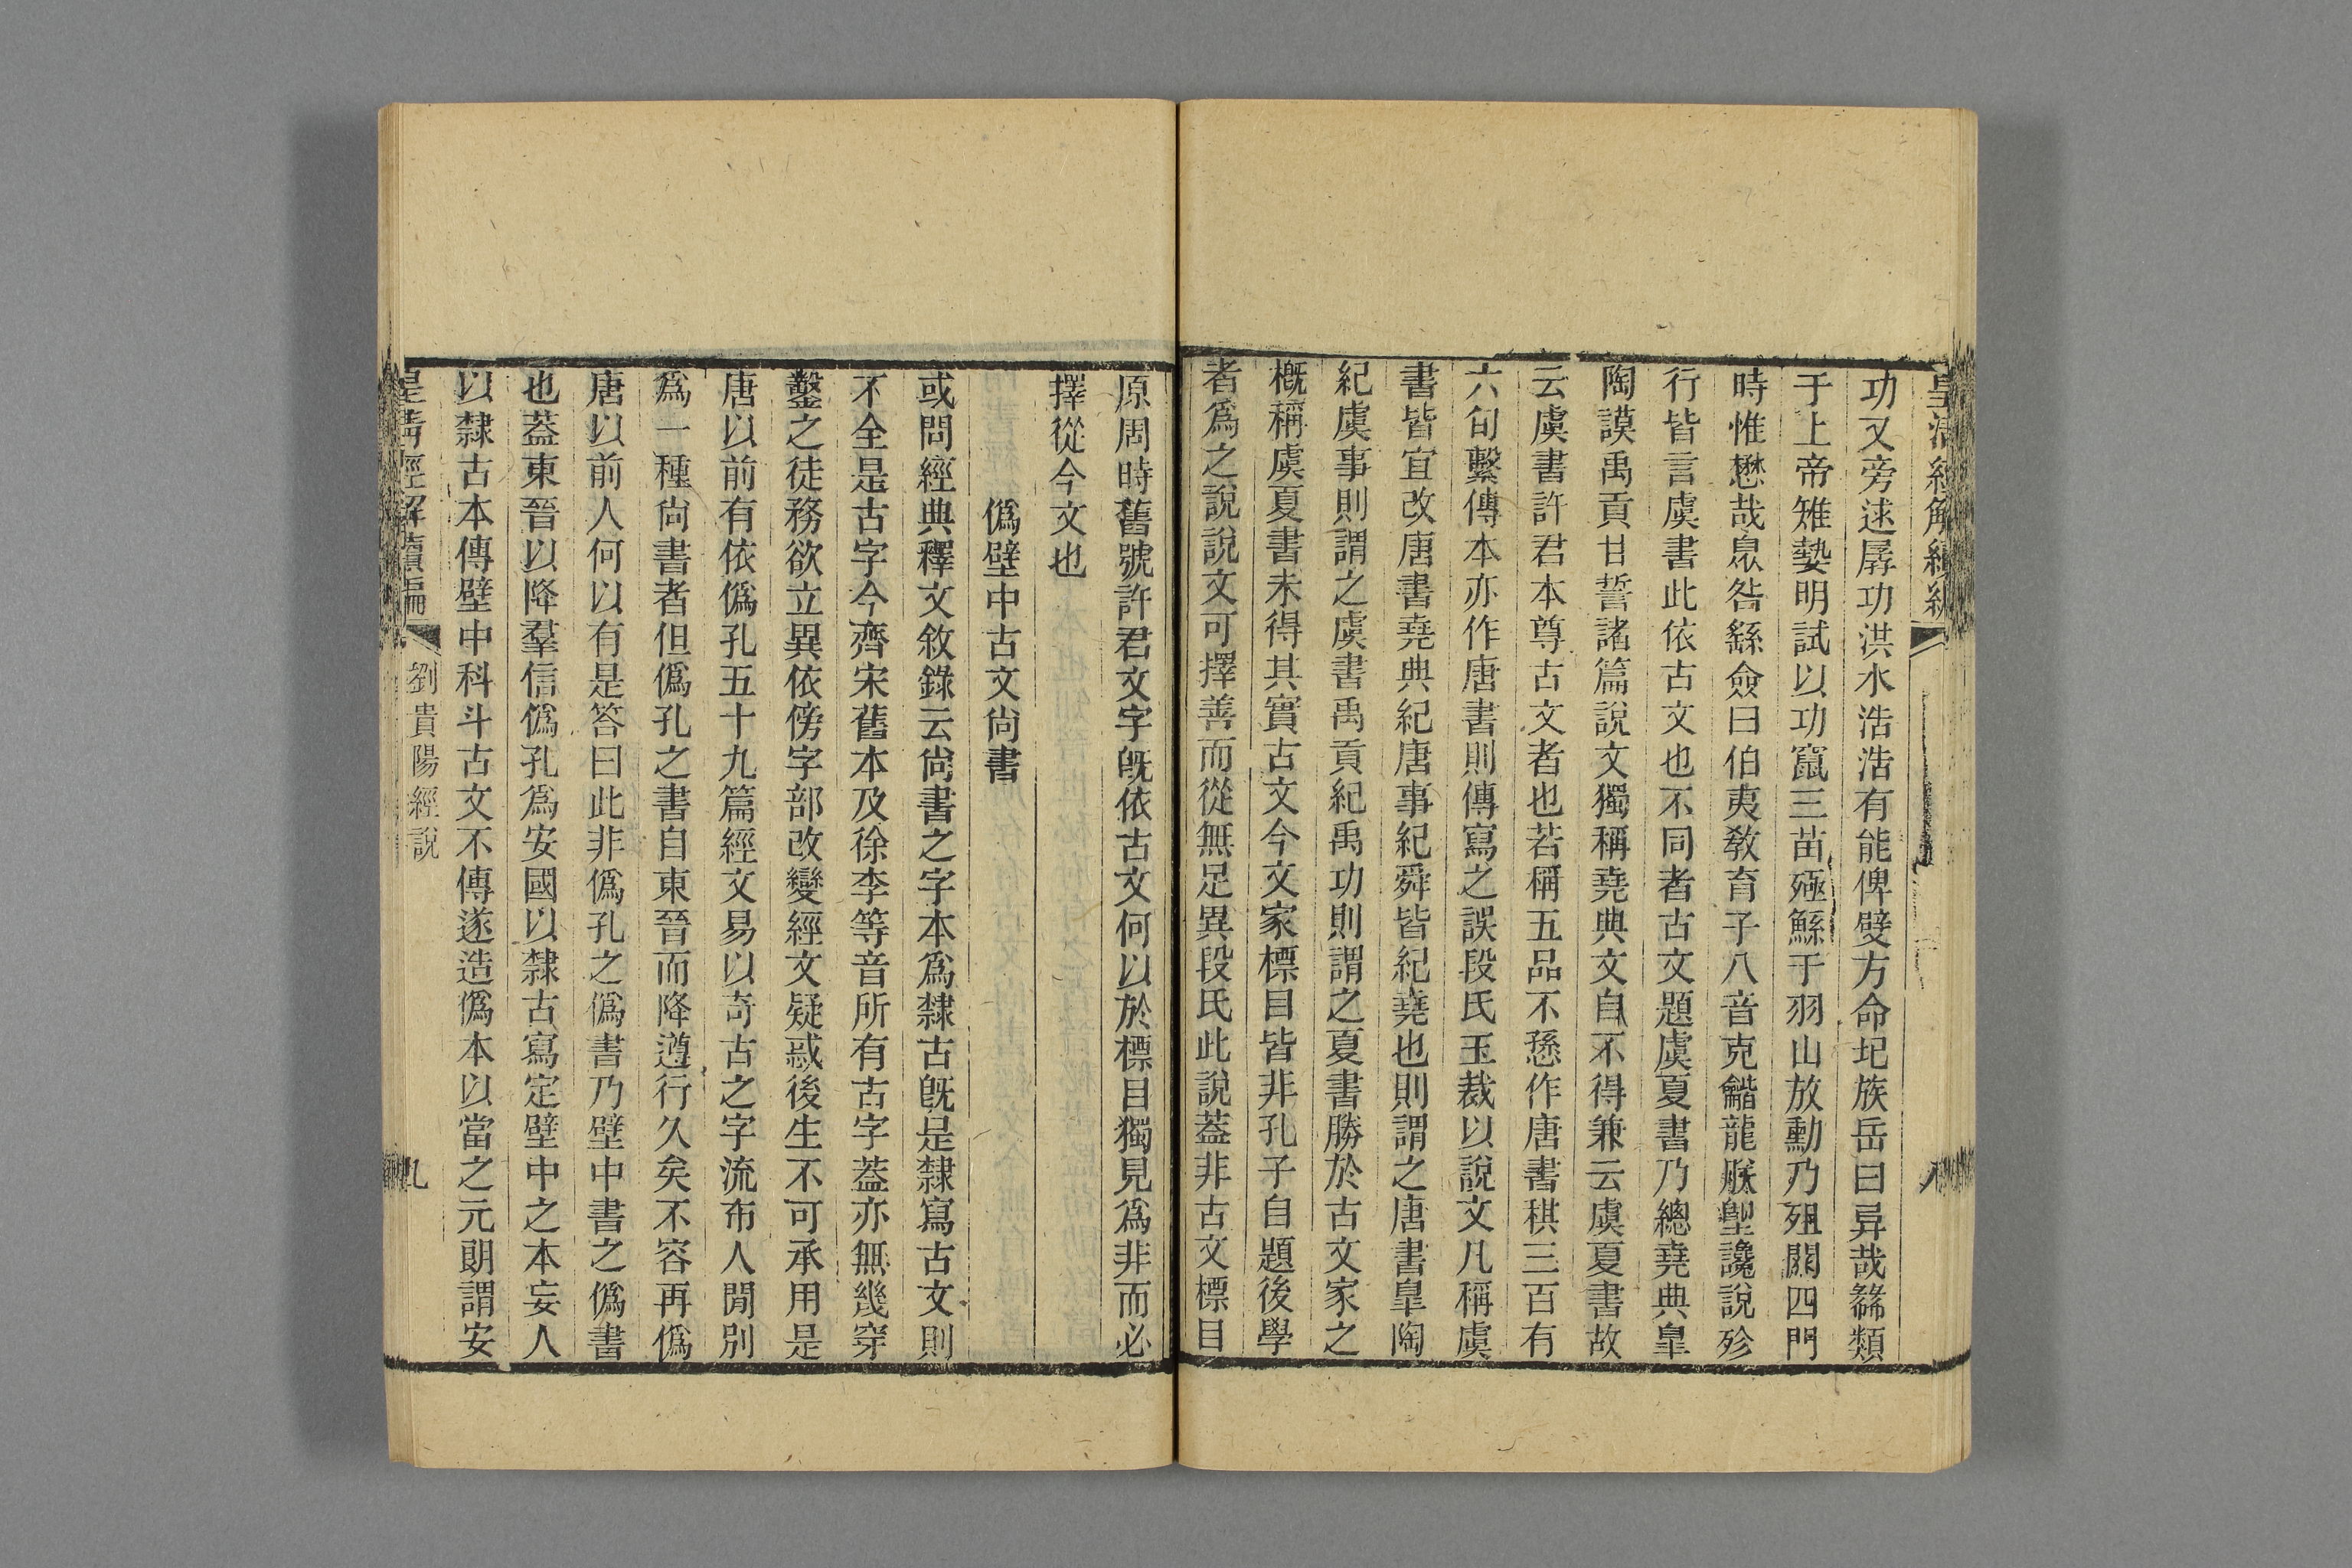 功又旁逑孱功洪水浩浩有能俾躄方命圮族岳曰异哉䋣類
于上帝雉藝明試以功竄三苗殛鯀于羽山放勳乃殂闢四門
時惟懋哉𠂤咎繇僉曰伯夷敎育子八音克龤龍朕堲讒說殄
行皆言虞書此依古文也不同者古文題虞夏書乃總堯典臯
陶謨禹貢甘誓諸篇說文獨稱堯典文自不得兼云虞夏書故
云虞書許君本尊古文者也若稱五品不愻作唐書稘三百有
六旬繫傳本亦作唐書則傳寫之誤段氏玉裁以說文凡稱虞
書皆宜改唐書堯典紀唐事紀舜皆紀堯也則謂之唐書臯陶
紀虞事則謂之虞書禹貢紀禹功則謂之夏書勝於古文家之
槪稱虞夏書未得其實古文今文家標目皆非孔子自題後學
者爲之說說文可擇善而從無足異段氏此說蓋非古文標目
原周時舊號許君文字旣依古文何以於標目獨見爲非而必
擇從今文也
僞壁中古文尙書
或問經典釋文敘錄云尙書之字本爲隸古旣是隸寫古文則
不全是古字今齊宋舊本及徐李等音所有古字蓋亦無幾穿
鑿之徒務欲立異依傍字部改變經文疑惑後生不可承用是
唐以前有依僞孔五十九篇經文易以奇古之字流布人閒別
爲一種尙書者但僞孔之書自東晉而降遵行久矣不容再僞
唐以前人何以有是答曰此非僞孔之僞書乃壁中書之僞書
也蓋東晉以降羣信僞孔爲安國以隸古寫定壁中之本妄人
以隸古本傳壁中科斗古文不傳遂造僞本以當之元朗謂安
皇淸經解續編
劉貴陽經說
九